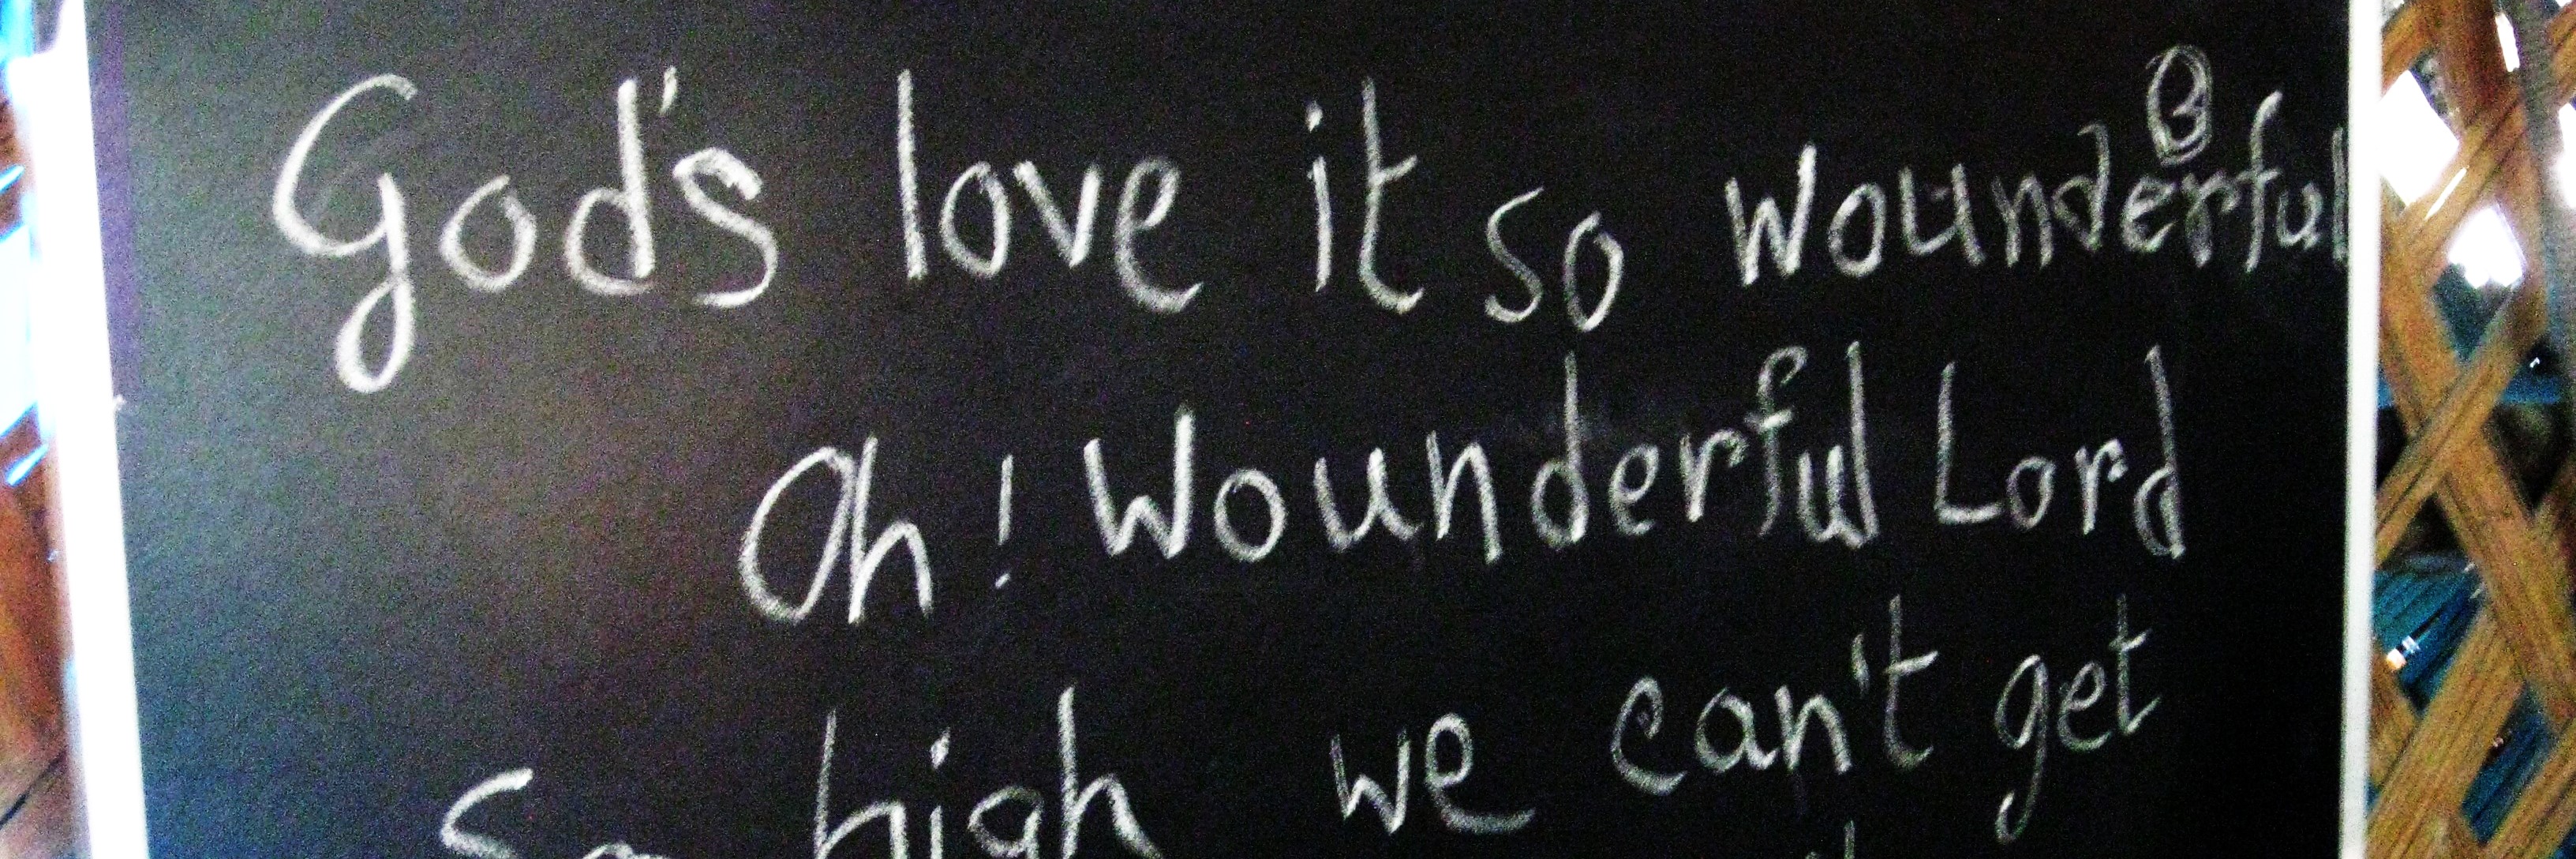 God's love it so wounderful ③
Oh! Wounderful Lord
So high we can't get